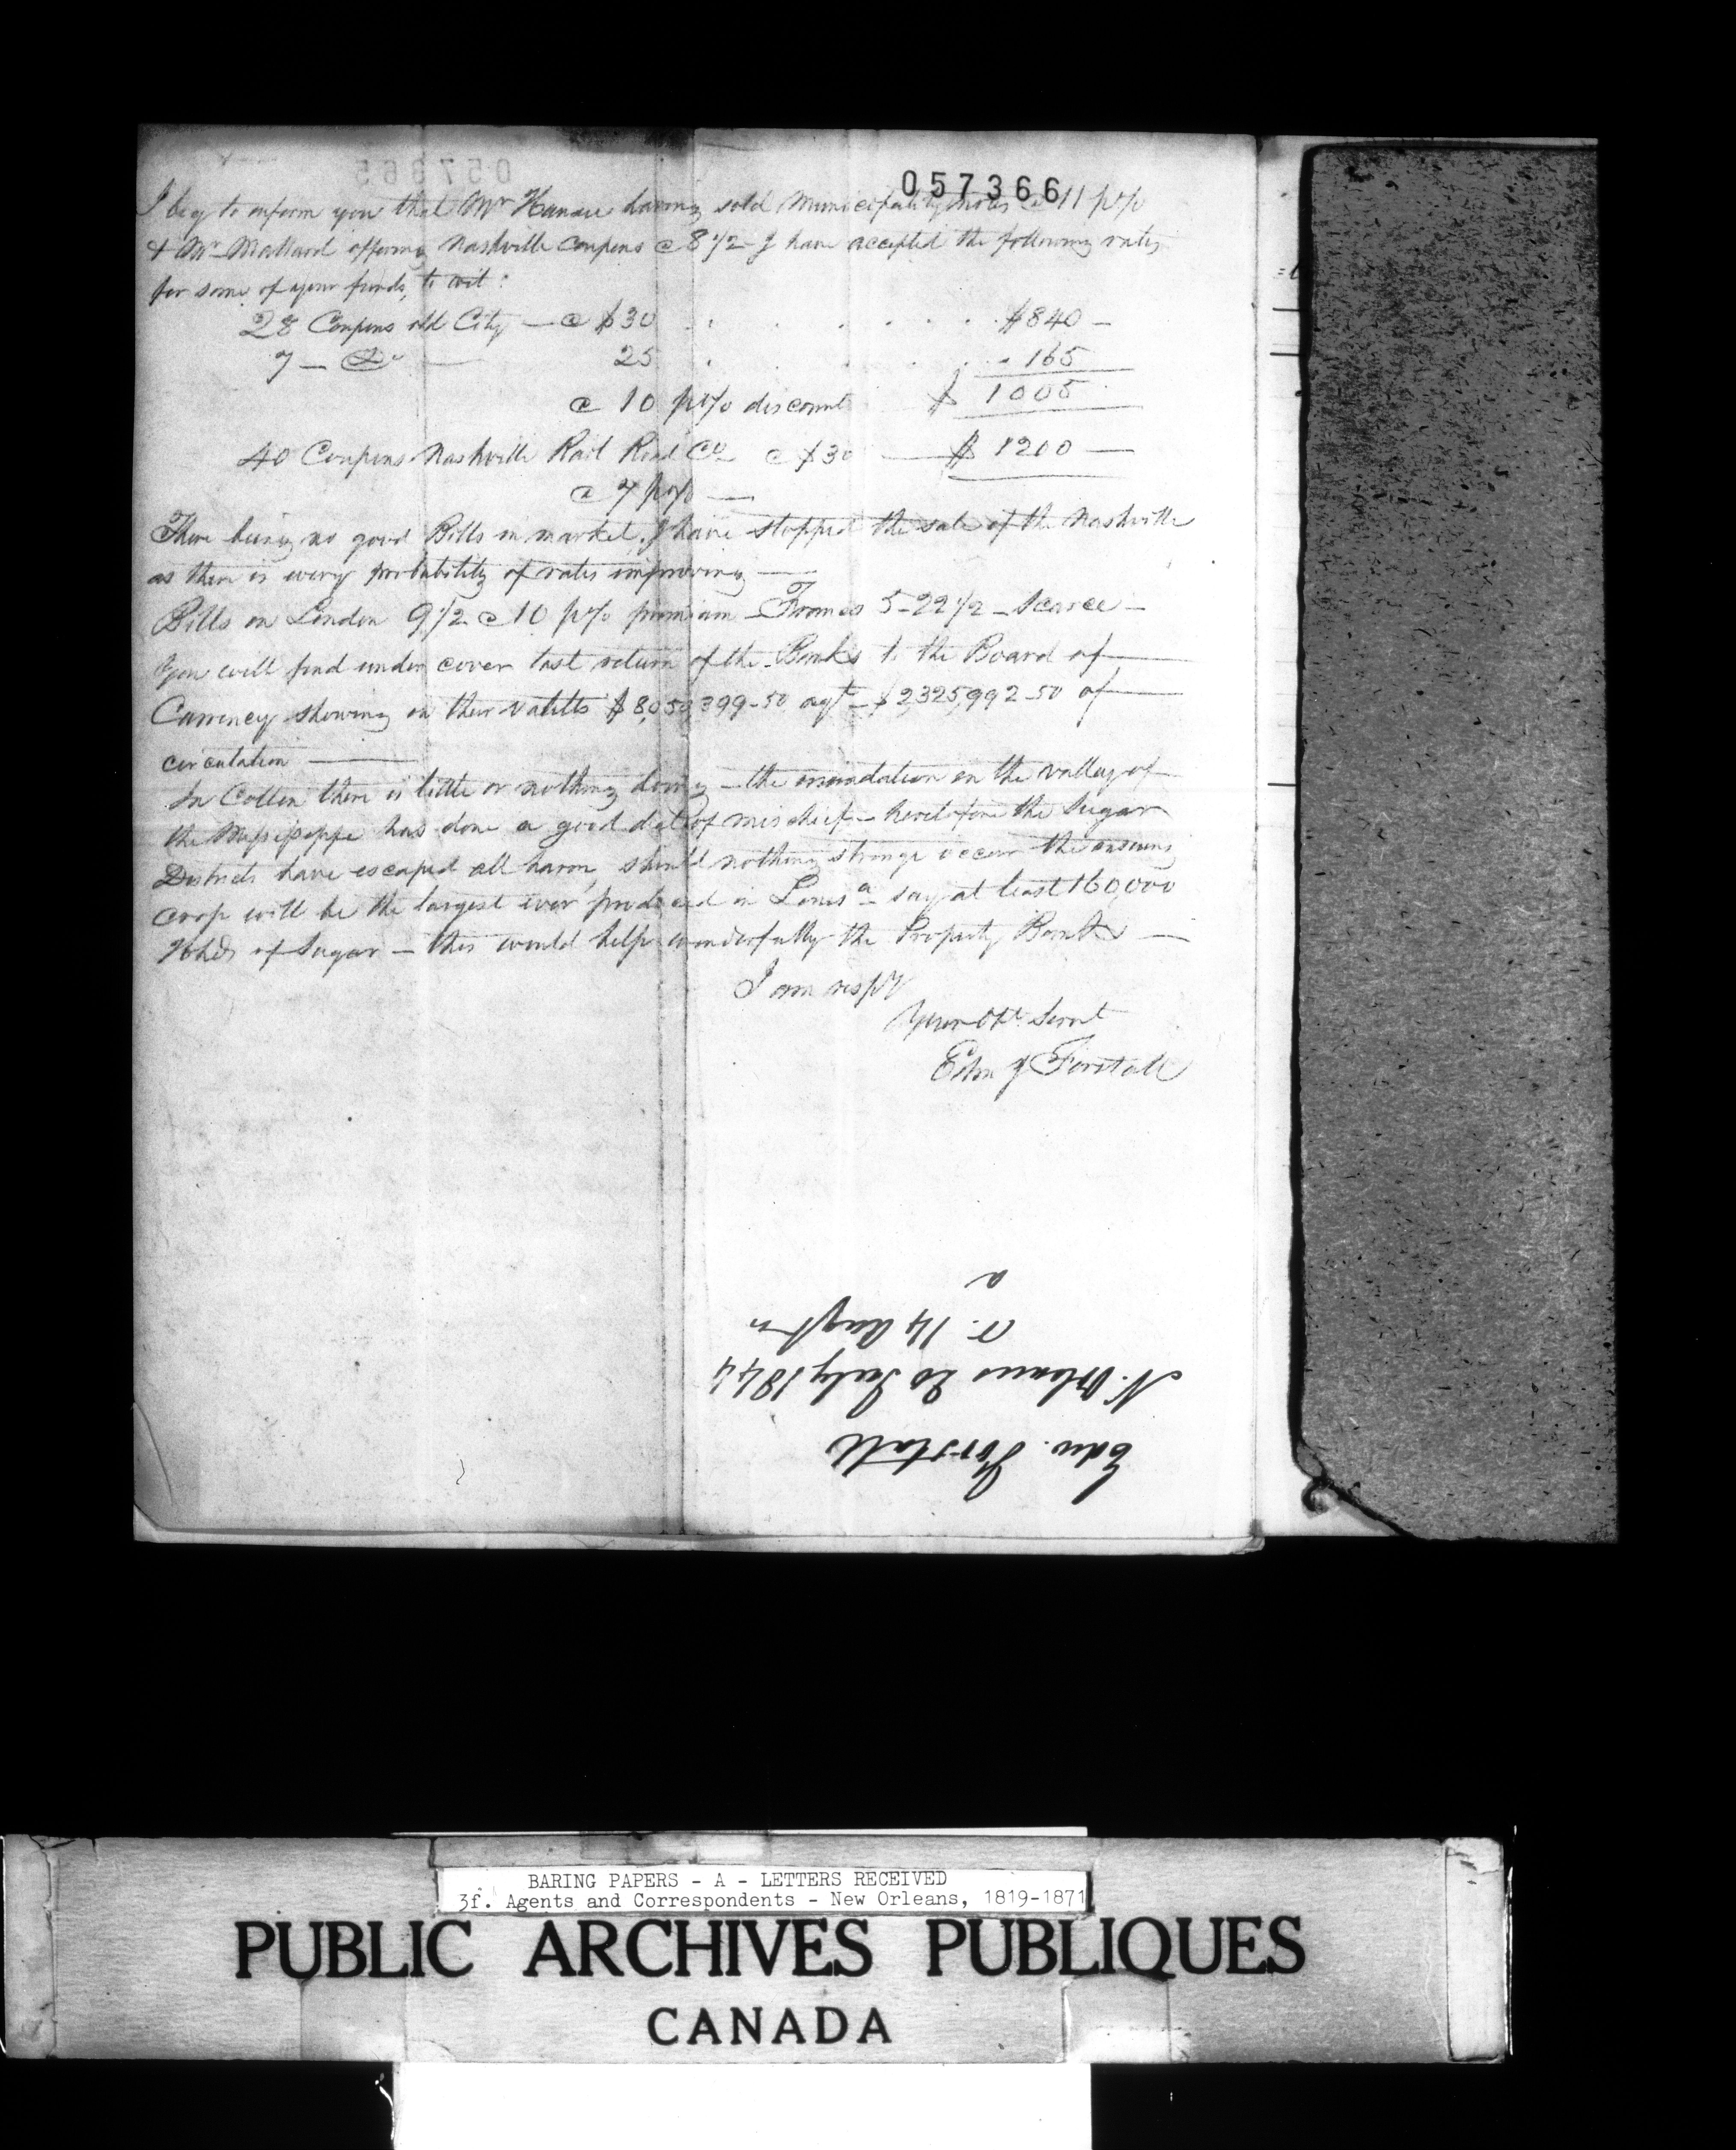 057366
I beg to inform you that Mr Hanau having sold Municipality notes @ 11 p%
& Mr Mallard offering Nashville Coupons @ 8 1/2 - I have accepted the following rates
for some of your funds, to wit:
28 Coupons old City — @ $30 . . . . . . . $840 —
7 — Do — 25 . . . . . 165
@ 10 p% discount $ 1005
40 Coupons Nashville Rail Road Co @ $30 — $ 1200 —
@ 7 p% —
There being no good Bills in market, I have stopped the sale of the Nashville
as there is every probability of rates improving —
Bills on London 9 1/2 @ 10 p% premium — Francs 5-22 1/2 — Scarce —
You will find under cover last return of the Banks to the Board of
Currency showing in their vaults $8,050,399-50 agt — $2,325,992-50 of
circulation —
In Cotton there is little or nothing doing — the inundation in the valley of
the Mississippi has done a good deal of mischief — heretofore the Sugar
Districts have escaped all harm, should nothing strange occur the ensuing
crop will be the largest ever produced in Louisa — say at least 160,000
Hhds of Sugar — this would help wonderfully the Property Banks —
I am respy
Your Obt. Servt
Edm J Forstall
Edm. Forstall
N. Orleans 20 July 1844
r. 14 Augt
a
BARING PAPERS - A - LETTERS RECEIVED
3f. Agents and Correspondents - New Orleans, 1819-1871
PUBLIC ARCHIVES PUBLIQUES
CANADA